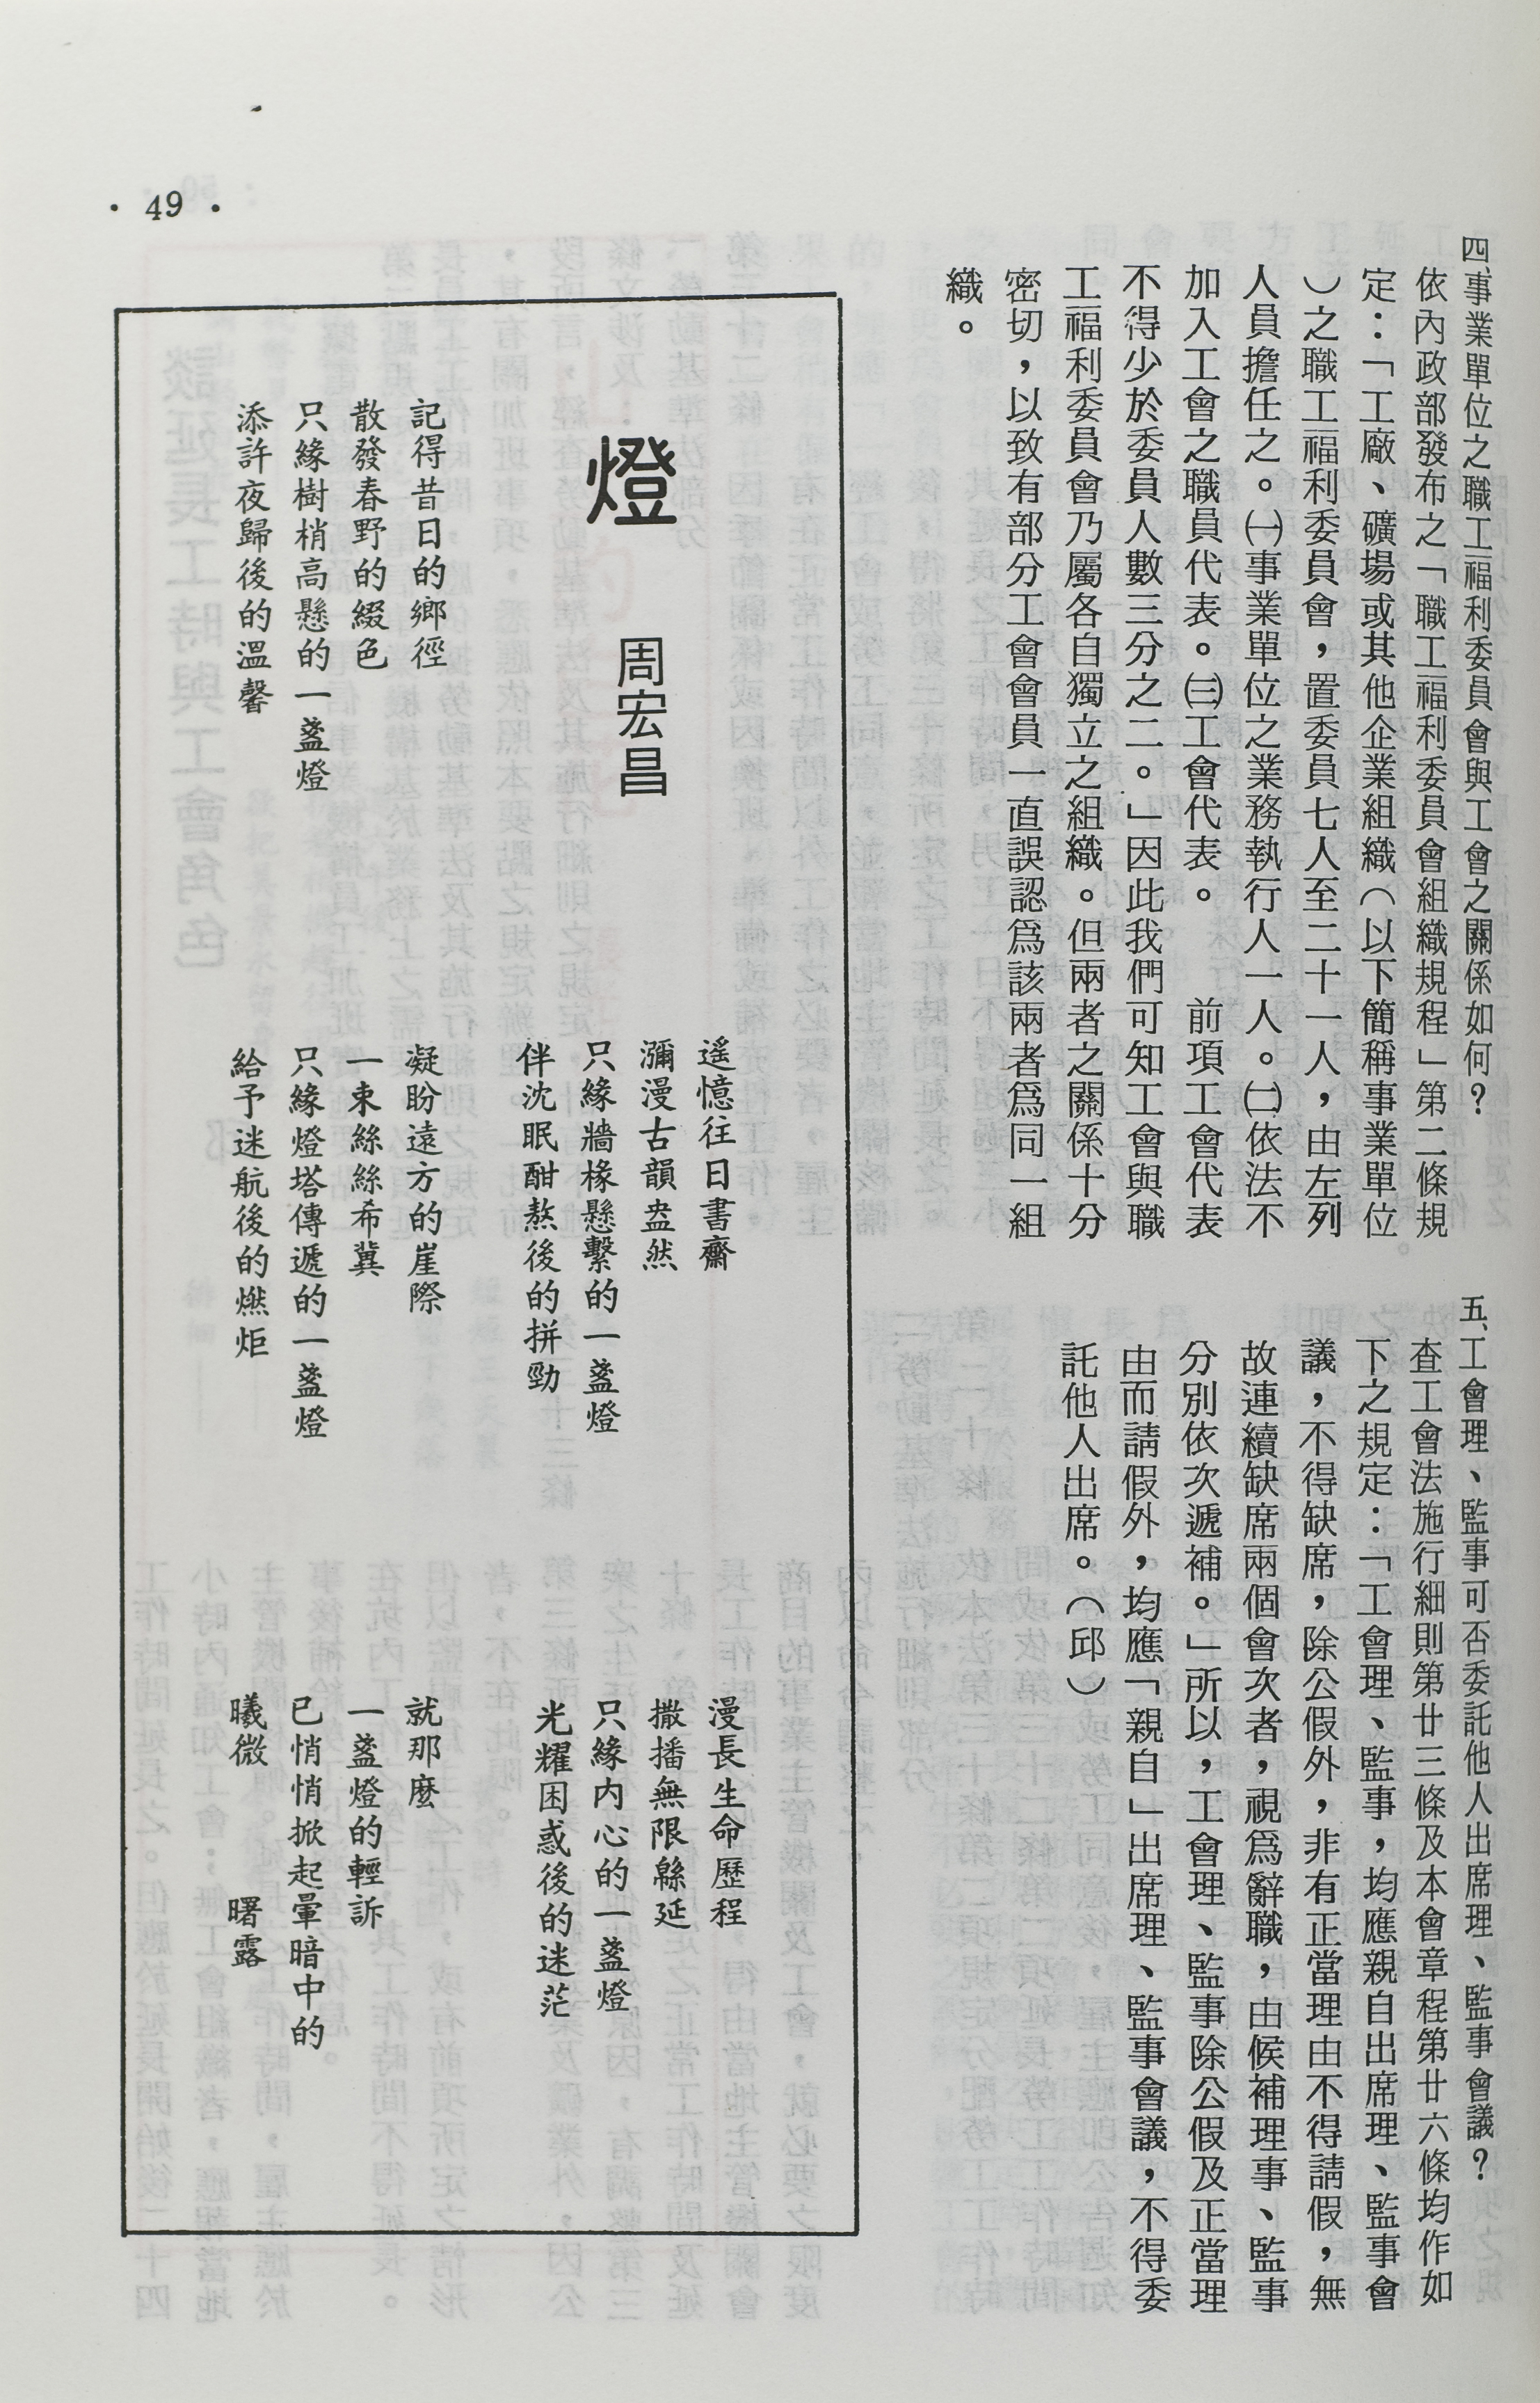 四、事業單位之職工福利委員會與工會之關係如何？
依內政部發布之「職工福利委員會組織規程」第二條規
定：「工廠、礦場或其他企業組織（以下簡稱事業單位
）之職工福利委員會，置委員七人至二十一人，由左列
人員擔任之。㈠事業單位之業務執行人一人。㈡依法不
加入工會之職員代表。㈢工會代表。　前項工會代表
不得少於委員人數三分之二。」因此我們可知工會與職
工福利委員會乃屬各自獨立之組織。但兩者之關係十分
密切，以致有部分工會會員一直誤認爲該兩者爲同一組
織。
五、工會理、監事可否委託他人出席理、監事會議？
查工會法施行細則第廿三條及本會章程第廿六條均作如
下之規定：「工會理、監事，均應親自出席理、監事會
議，不得缺席，除公假外，非有正當理由不得請假，無
故連續缺席兩個會次者，視爲辭職，由候補理事、監事
分別依次遞補。」所以，工會理、監事除公假及正當理
由而請假外，均應「親自」出席理、監事會議，不得委
託他人出席。（邱）
燈
周宏昌
記得昔日的鄉徑
散發春野的綴色
只緣樹梢高懸的一盞燈
添許夜歸後的溫馨
遥憶往日書齋
瀰漫古韻盎然
只緣牆椽懸繫的一盞燈
伴沈眠酣熬後的拼勁
凝盼遠方的崖際
一束絲絲希冀
只緣燈塔傳遞的一盞燈
給予迷航後的燃炬
漫長生命歷程
撒播無限緜延
只緣内心的一盞燈
光耀困惑後的迷茫
就那麼
一盞燈的輕訴
已悄悄掀起暈暗中的
曦微　　曙露
• 49 •